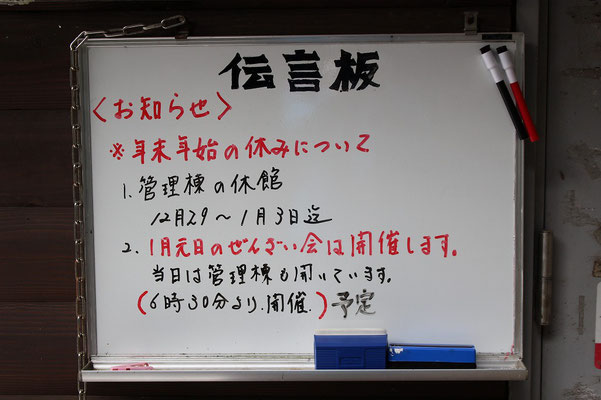 伝言板
〈お知らせ〉
※年末年始の休みについて
1. 管理棟の休館
12月29～1月3日迄
2. 1月元日のぜんざい会は開催します。
当日は管理棟も開いています。
(6時30分より.開催.)予定